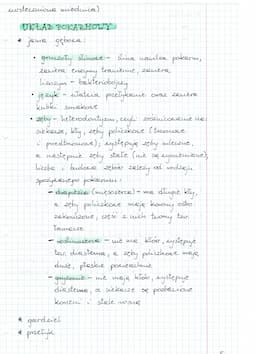 UKŁAD POKARMOWY
• jama gębowa:
• gruczoły ślinowe - ślina nawilża pokarm,
zawiera enzymy trawienne, zawiera
lizozym - bakteriobójczy
• język - ułatwia połykanie oraz zawiera
kubki smakowe
• zęby - heterodontyzm, czyli zróżnicowanie na:
siekacze, kły, zęby policzkowe (trzonowe
i przedtrzonowe); występują zęby mleczne,
a następnie zęby stałe (nie są wymieniane);
liczba i budowa zębów zależy od rodzaju
spożywanego pokarmu:
- drapieżne (mięsożerne) - ma długie kły,
a zęby policzkowe mają korony ostro
zakończone, część z nich tworzy tzw.
łamacze
- roślinożerne - nie ma kłów, występuje
tzw. diastema, a zęby policzkowe mają
duże, płaskie powierzchnie
- gryzonie - nie mają kłów, występuje
diastema, a siekacze są pozbawione
korzeni i stale rosną
• gardziel
• przełyk